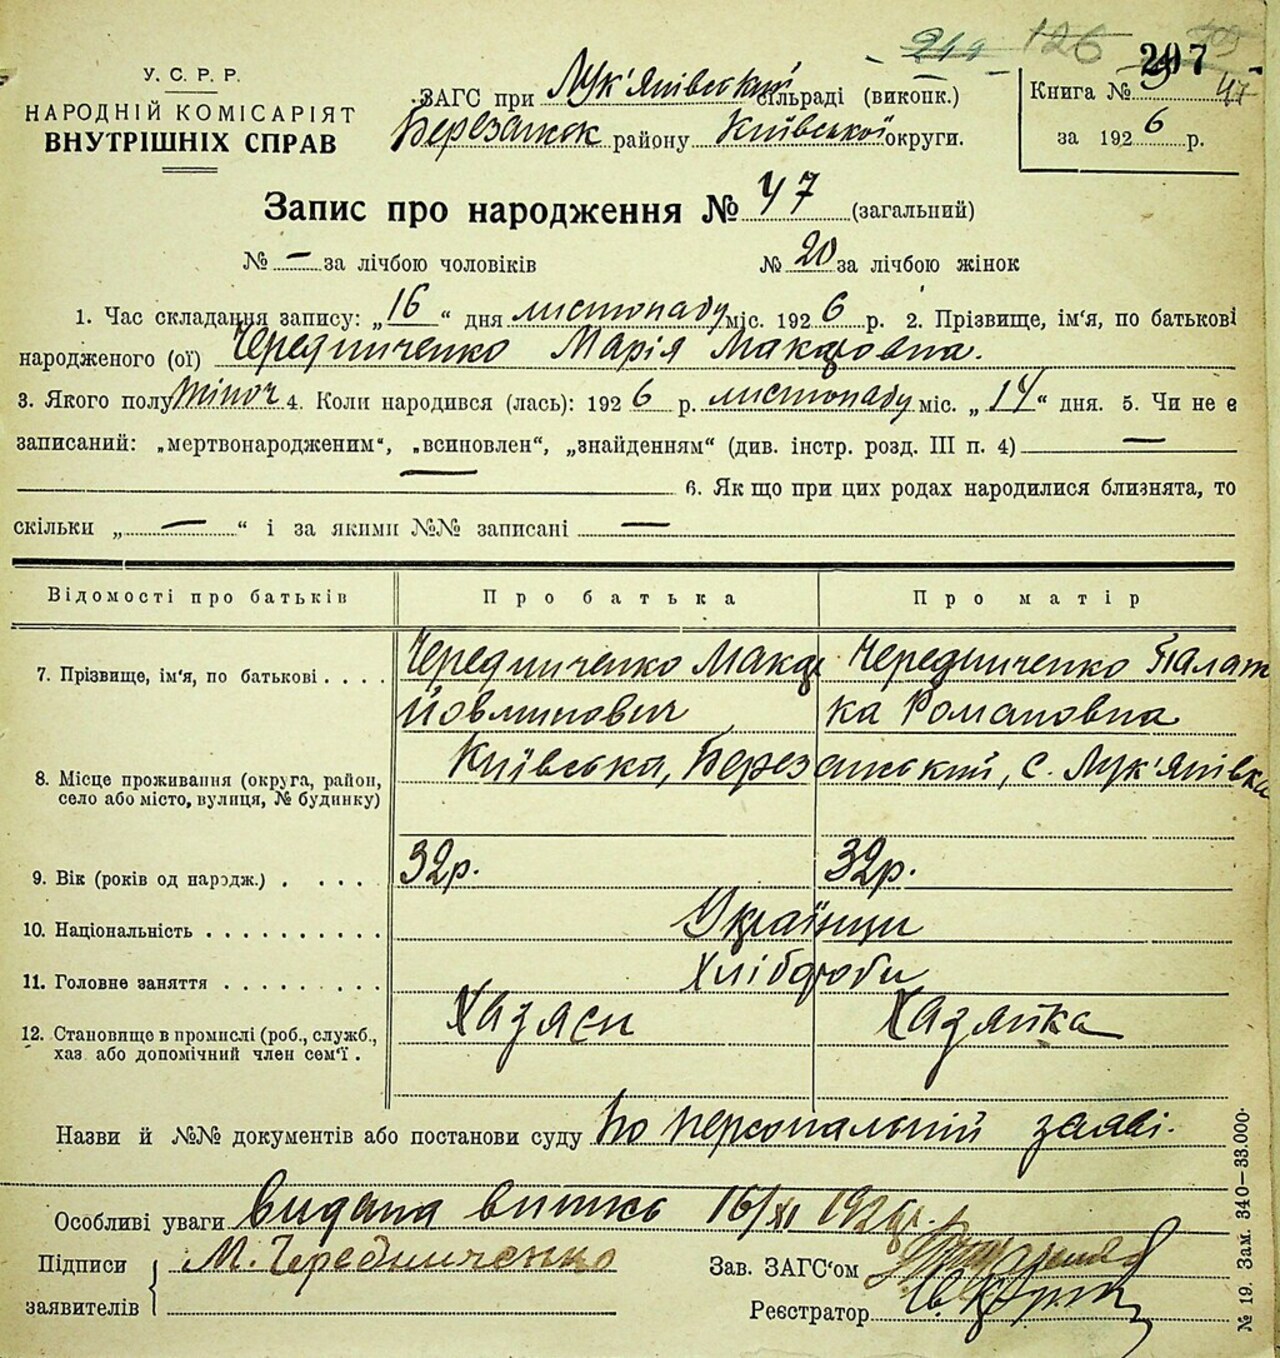 244 126
207
У. С. Р. Р.
НАРОДНІЙ КОМІСАРІЯТ
ВНУТРІШНІХ СПРАВ
ЗАГС при Лук'янівський сільраді (викопк.)
Березанськ району Київської округи.
Книга № 9 47
за 1926 р.
Запис про народження № 47 (загальний)
№ — за лічбою чоловіків № 20 за лічбою жінок
1. Час складання запису: „16“ дня листопаду міс. 1926 р. 2. Прізвище, ім'я, по батькові
народженого (ої) Чередниченко Марія Макаровна.
3. Якого полу жіноч 4. Коли народився (лась): 1926 р. листопаду міс. „14“ дня. 5. Чи не є
записаний: „мертвонародженим“, „всиновлен“, „знайденням“ (див. інстр. розд. III п. 4) —
— 6. Як що при цих родах народилися близнята, то
скільки „ — “ і за якими №№ записані —
Відомості про батьків Про батька Про матір
7. Прізвище, ім'я, по батькові . . . . Чередниченко Макар Чередниченко Палаж
ка Романовна
8. Місце проживання (округа, район,
село або місто, вулиця, № будинку)
Київська, Березанський, с. Лук'янівка
9. Вік (років од народж.) . . . . . 32р. 32р.
10. Національність . . . . . . . . . . Українци
11. Головне заняття . . . . . . . . . Хлібороби
12. Становище в промислі (роб., служб.,
хаз або допомічний член сем'ї .
Хазяєн Хазяйка
Назви й №№ документів або постанови суду по персональній заяві.
Особливі уваги видана витись 16/XI 1926р.
Підписи
заявителів
М. Чередниченко
Зав. ЗАГС'ом
Реєстратор
№ 19. Зам. 340—33.000.